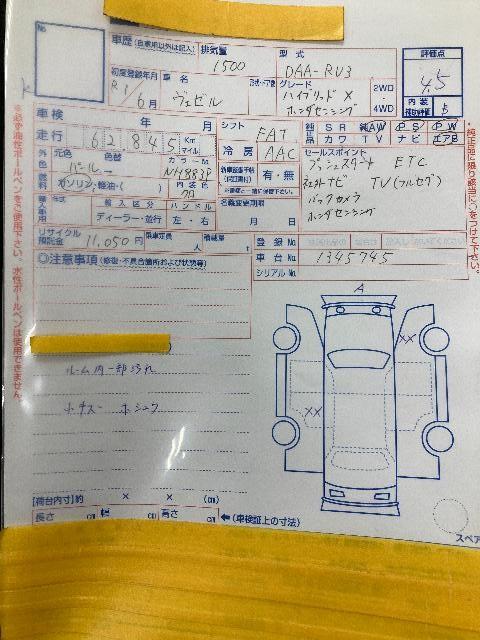 No.
車歴 (自家用以外は記入)
排気量
1500
型式
DAA-RU3
評価点
4.5
内装
補助評価
初度登録年月
R1/6月
車名
ヴェゼル
グレード
ハイブリッドX
ホンダセンシング
2WD
4WD
車検 年 月
シフト
FAT
純正品 SR 純AW PS PW
カワ TV ナビ エアB
走行 62845 Km マイル
冷房
AAC
セールスポイント
プッシュスタート ETC
ナビ TV(フルセグ)
バックカメラ
ホンダセンシング
外色 元色 色替 カラーNo.
パール NH883P
燃料 ガソリン・軽油・( ) 内装色
有・無
輸入車用 年式 輸入区分 ハンドル
ディーラー・並行 左・右
名義変更期限
月 日
リサイクル預託金 11,050円
乗車定員 人
積載量 t
登録No.
車台No. 1345745
シリアルNo.
◎注意事項 (修復・不具合箇所および状態等)
A
XX
XX
ルーム内一部汚れ
小キズー ホシュウ
[荷台内寸] 約 × × (cm)
長さ cm 幅 cm 高さ cm ←(車検証上の寸法)
スペア
※必ず油性ボールペンをご使用下さい。水性ボールペンは使用できません。
*純正品に限り該当に○をつけて下さい。